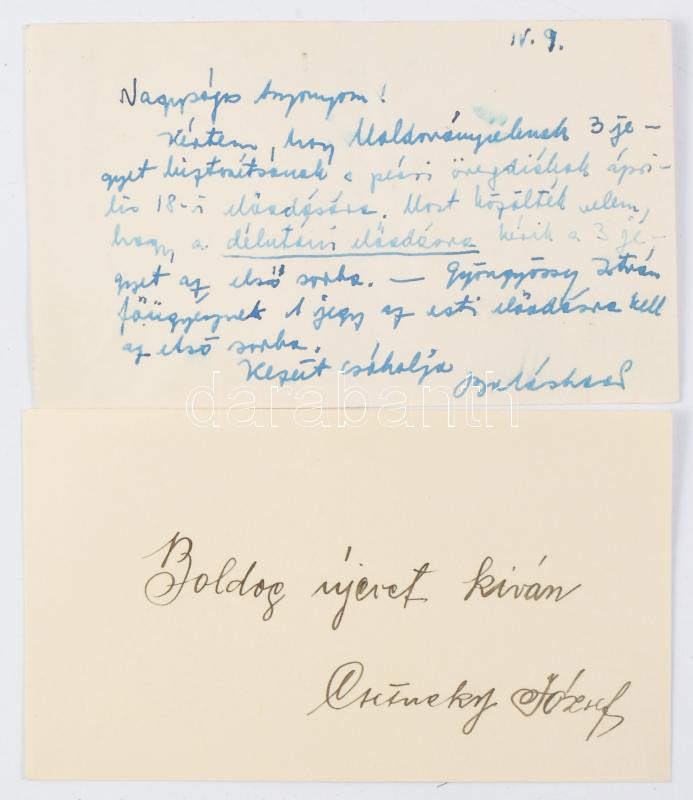 IV. 9.
Nagyságos Asszonyom!
Kértem, hogy 3 je-
gyet biztosítsanak a pécsi öregdiákok ápri-
lis 18-i előadására. Most közölték velem,
hogy a délutáni előadásra kérik a 3 je-
gyet az első sorba. — Gyöngyössy István
főügyésznek 1 jegy az esti előadásra kell
az első sorba.
Kezeit csókolja
darabanth
Boldog újévet kíván
József